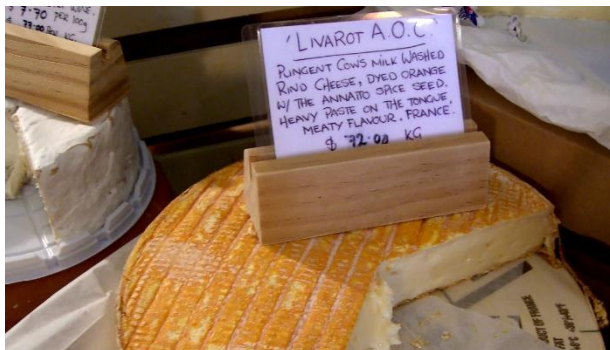 7.70 per 100g
'LIVAROT A.O.C.'
PUNGENT COWS MILK WASHED
RIND CHEESE, DYED ORANGE
W/ THE ANNATTO SPICE SEED.
HEAVY PASTE ON THE TONGUE.
MEATY FLAVOUR. FRANCE.
$ 72.00 KG
OF FRANCE